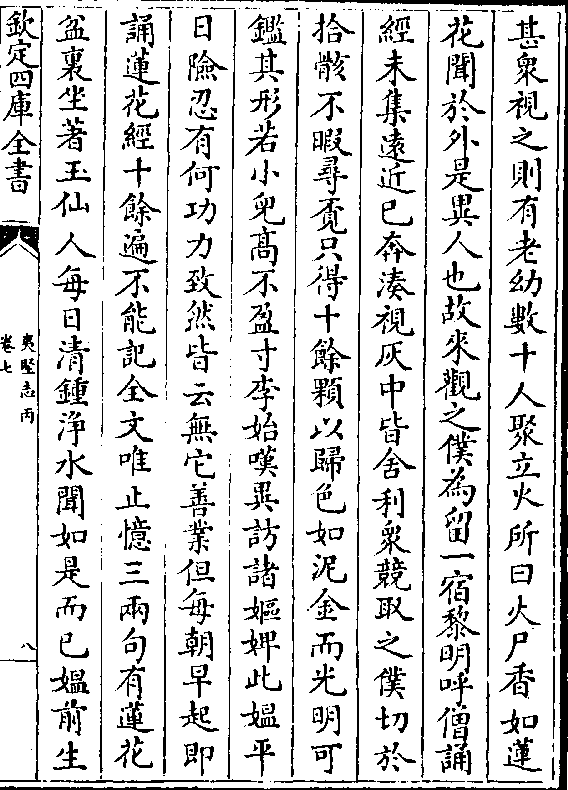 甚衆視之則有老幼數十人聚立火所曰火尸香如蓮
花聞於外是異人也故來觀之僕為留一宿黎明呼僧誦
經未集遠近已奔湊視灰中皆舍利衆競取之僕切於
拾骸不暇尋覔只得十餘顆以歸色如泥金而光明可
鑑其形若小兒高不盈寸李始嘆異訪諸嫗婢此媪平
日險忍有何功力致然皆云無它善業但每朝早起即
誦蓮花經十餘遍不能記全文唯止憶三兩句有蓮花
盆裏坐著玉仙人每日清鍾淨水聞如是而已媪前生
欽定四庫全書
夷堅志丙
卷七
八